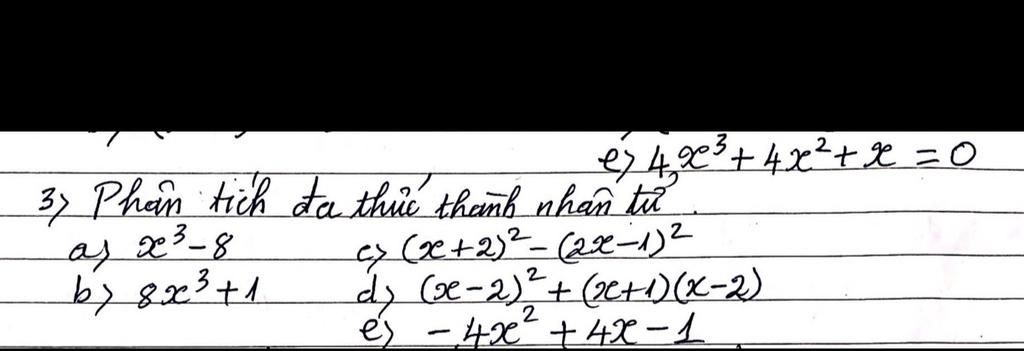 e) 4x³ + 4x² + x = 0
3) Phân tích đa thức thành nhân tử.
a) x³ - 8 c) (x+2)² - (2x-1)²
b) 8x³ + 1 d) (x-2)² + (x+1)(x-2)
e) - 4x² + 4x - 1